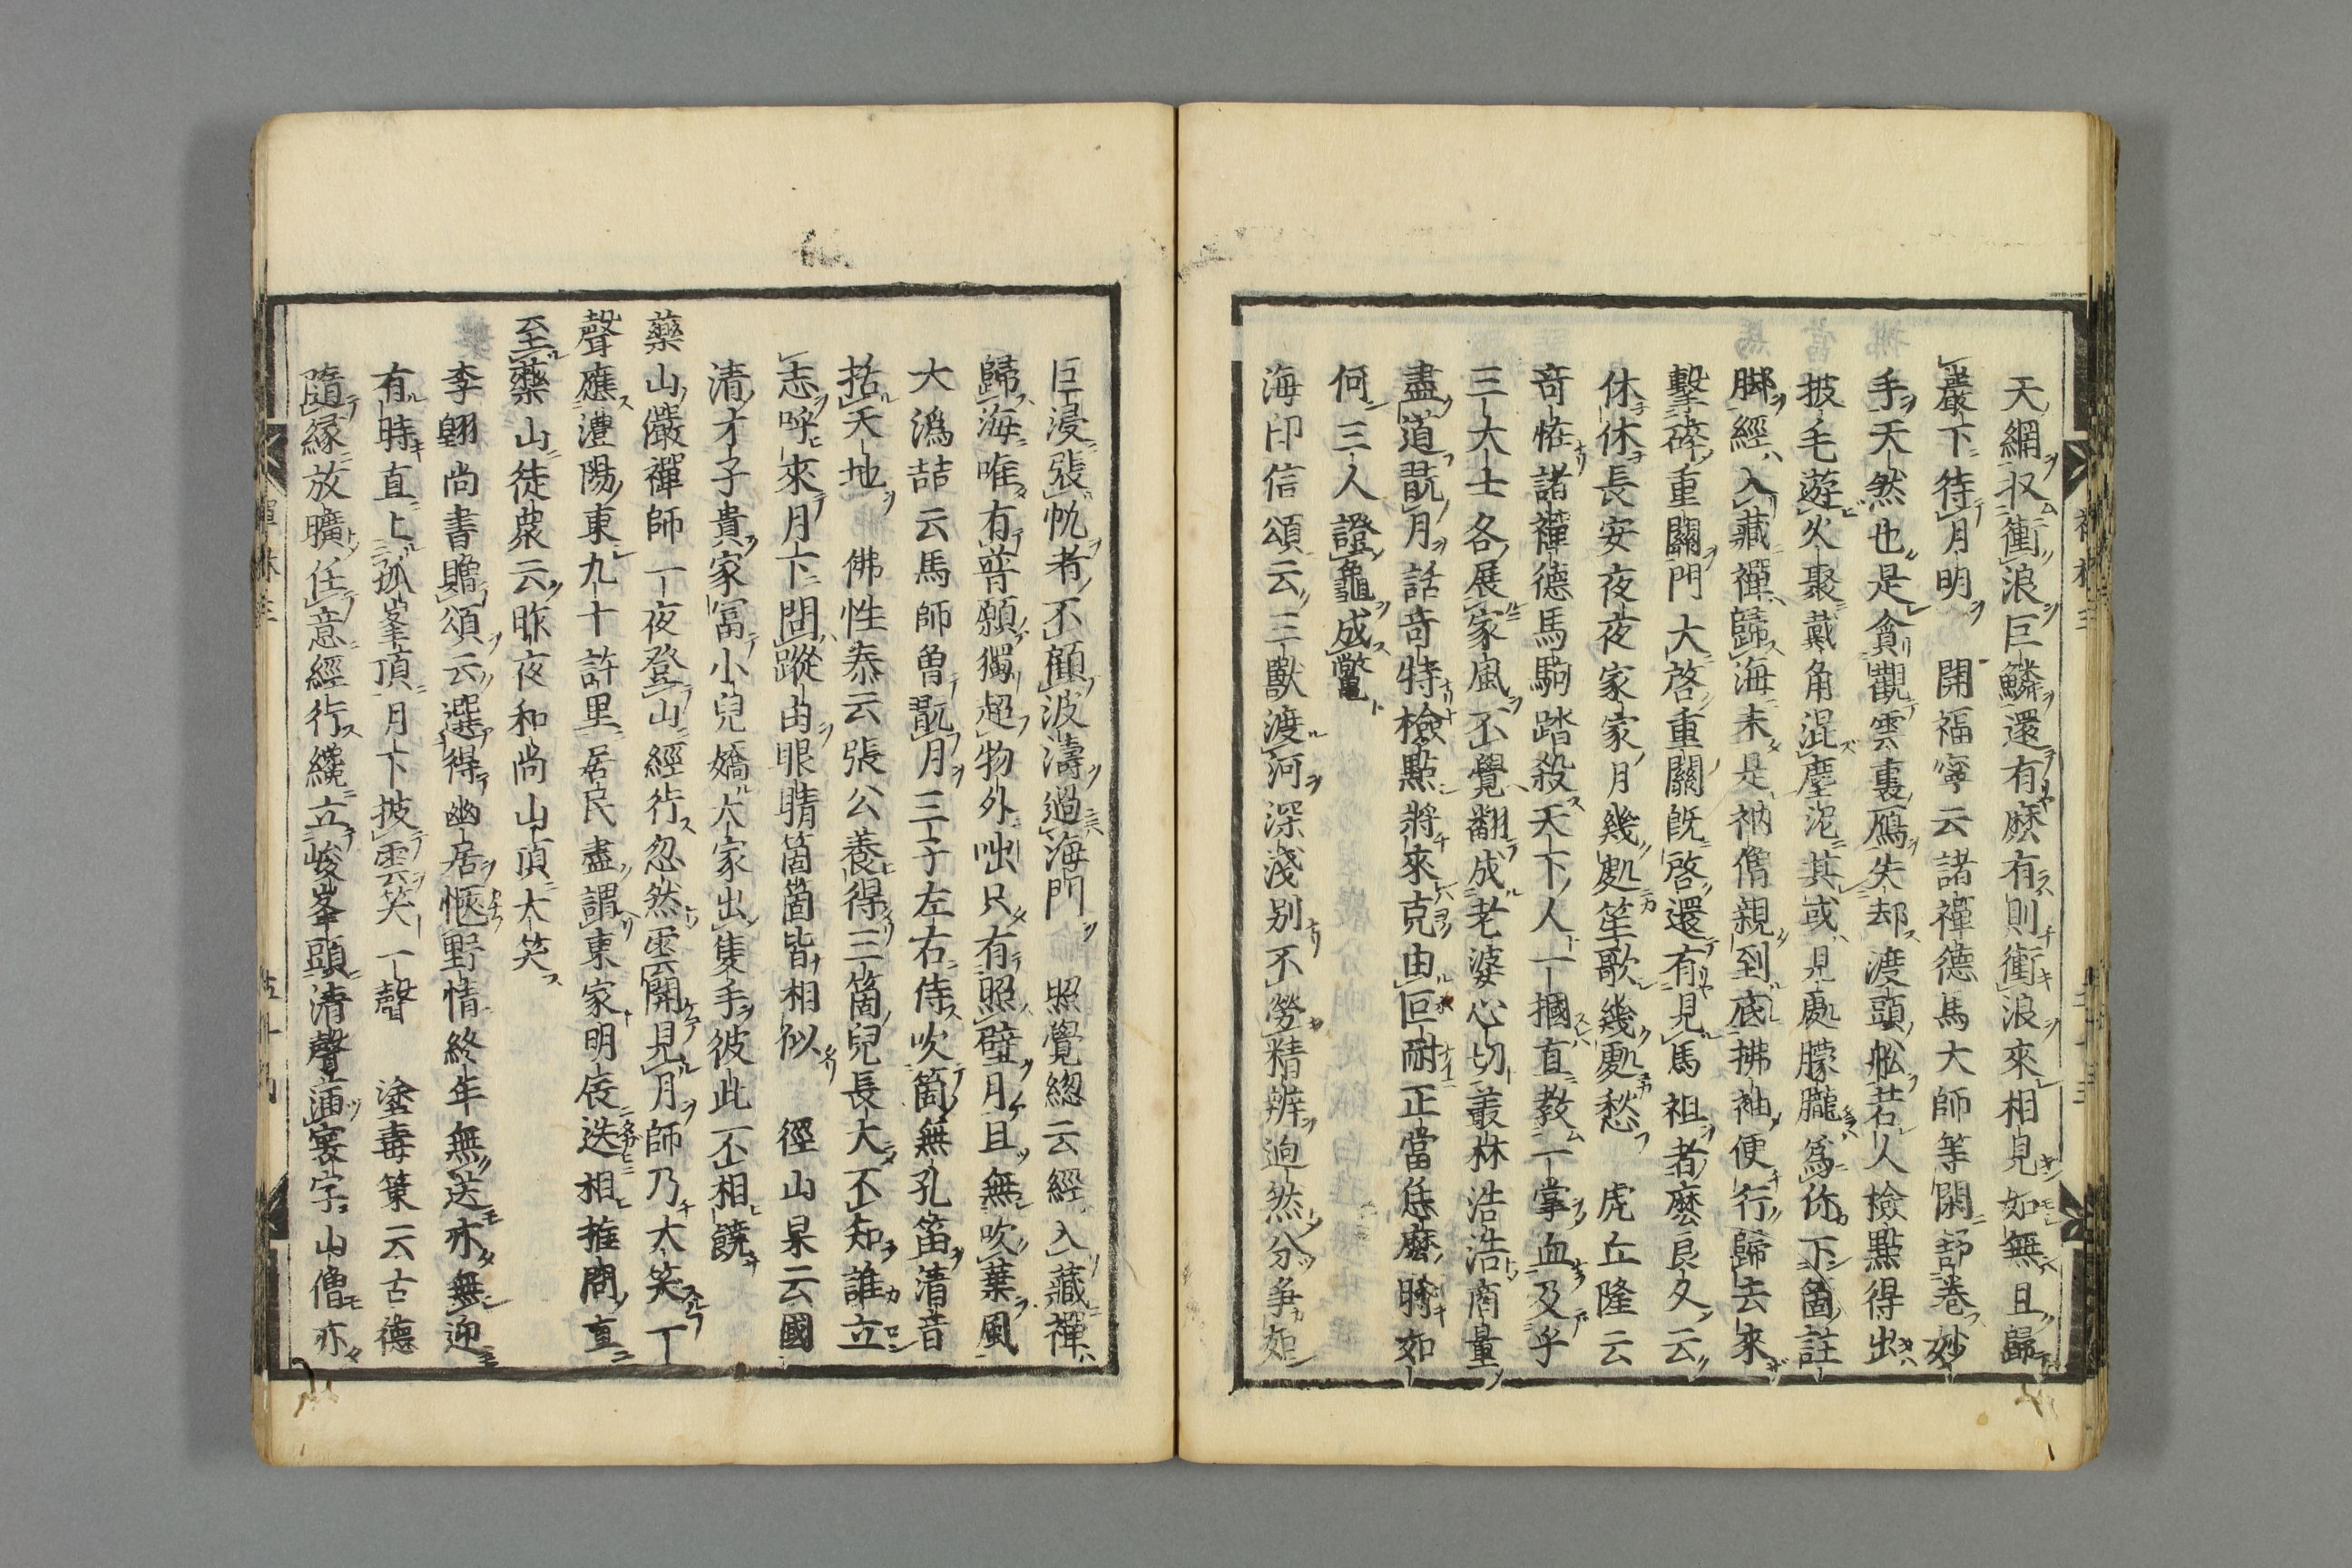 天網収衝浪巨鱗還有麽有則衝浪來相見如無且歸
巖下待月明　開福寧云諸禪德馬大師等閑舒卷妙
手天然也是貪觀雲裏鴈失却渡頭舩若人檢點得出
披毛遊火聚戴角混塵泥其或見處朦朧爲你下箇註
脚經入藏禪歸海未是衲僧親到底拂袖便行歸去來
擊碎重關門大啓重關既啓還有見馬祖者麽良久云
休休長安夜夜家家月幾處笙歌幾處愁　虎丘隆云
竒恠諸禪德馬駒踏殺天下人一摑直教一掌血及乎
三大士各展家風不覺翻成老婆心切叢林浩浩商量
盡道翫月話竒特檢點將來克由叵耐正當恁麽時如
何三人證龜成鼈
海印信頌云三獸渡河深淺別不勞精辨逈然分爭如
巨浸張帆者不顧波濤過海門　照覺緫云經入藏禪
歸海唯有普願獨超物外咄只有照璧月且無吹葉風
大潙喆云馬師曾翫月三子左右侍吹箇無孔笛清音
括天地　佛性泰云張公養得三箇兒長大不知誰立
志呼來月下問蹤由眼睛箇箇皆相似　徑山杲云國
清才子貴家冨小兒嬌大家出隻手彼此不相饒
藥山儼禪師一夜登山經行忽然雲開見月師乃大笑一
聲應澧陽東九十許里居民盡謂東家明辰迭相推問直
至藥山徒衆云昨夜和尚山頂大笑
李翺尚書贈頌云選得幽居愜野情終年無送亦無迎
有時直上孤峯頂月下披雲笑一聲　塗毒策云古德
隨縁放曠任意經行纔立峻峯頭清聲逼寰宇山僧亦